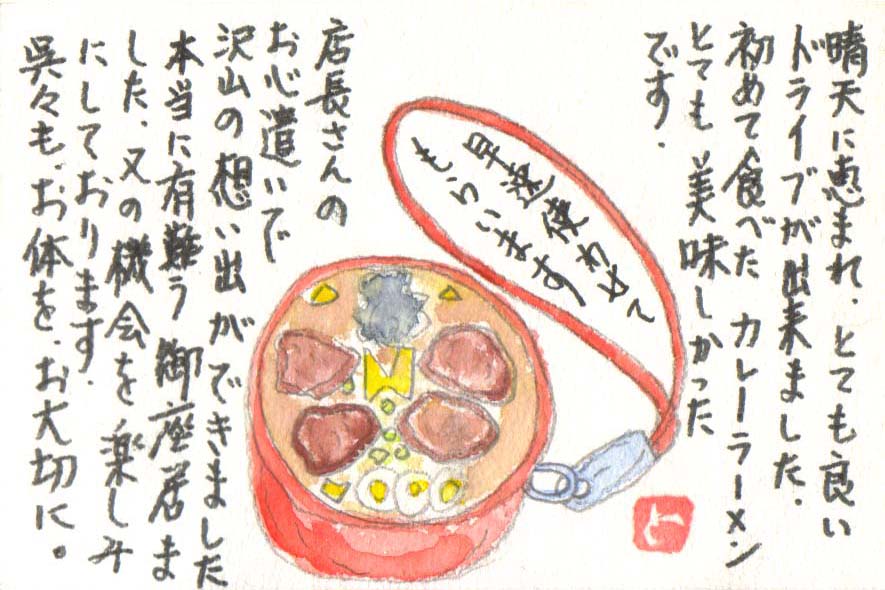 晴天に恵まれ、とても良い
ドライブが出来ました。
初めて食べた カレーラーメン
とても美味しかった
です。
早速使わせて
もらいます
店長さんの
お心遣いで
沢山の想い出ができました
本当に有難う御座居ま
した、又の機会を楽しみ
にしております。
呉々も、お体を、お大切に。
と